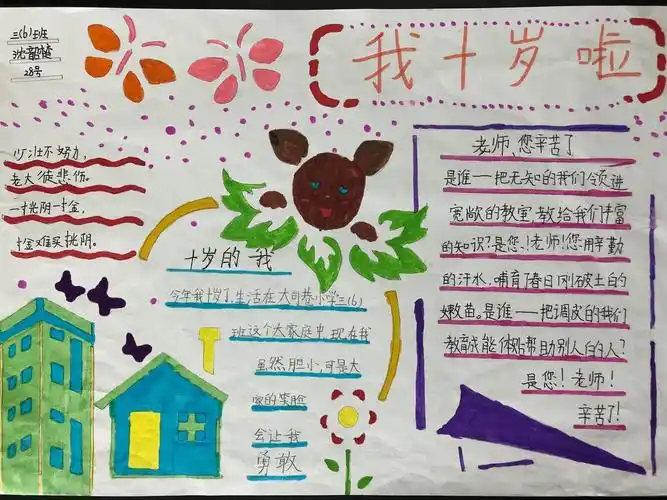 三(6)班
28号
我十岁啦
少壮不努力,
老大徒悲伤。
一寸光阴一寸金,
寸金难买寸光阴。
十岁的我
今年我十岁了,生活在大司巷小学三(6)
班这个大家庭中,现在我
虽然胆小,可是大
家的笑脸
会让我
勇敢
老师、您辛苦了
是谁——把无知的我们领进
宽敞的教室,教给我们丰富
的知识?是您!老师!您用辛勤
的汗水,哺育了春日刚破土的
嫩苗。是谁——把调皮的我们
教育成能体贴帮助别人的人?
是您!老师!
辛苦了!